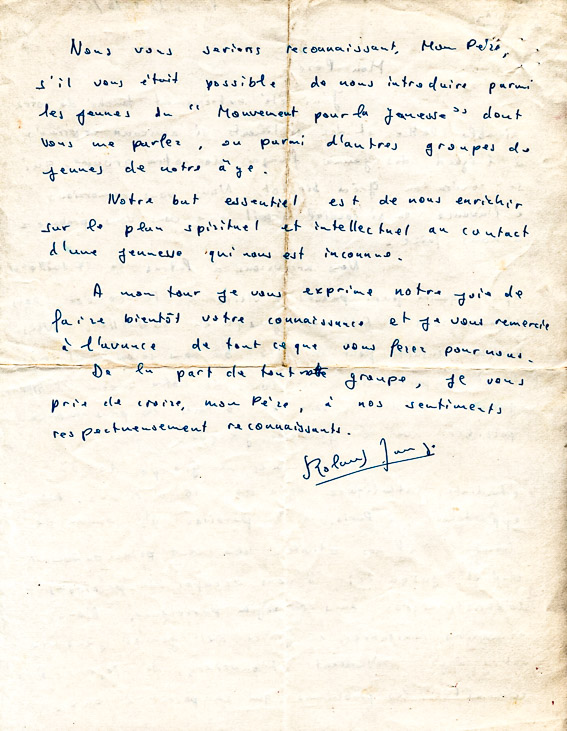 Nous vous serions reconnaissant, Mon Père,
s'il vous était possible de nous introduire parmi
les jeunes du "Mouvement pour la jeunesse" dont
vous me parlez, ou parmi d'autres groupes de
jeunes de notre âge.
Notre but essentiel est de nous enrichir
sur le plan spirituel et intellectuel au contact
d'une jeunesse qui nous est inconnue.
A mon tour je vous exprime notre joie de
faire bientôt votre connaissance et je vous remercie
à l'avance de tout ce que vous ferez pour nous.
De la part de tout notre groupe, je vous
prie de croire, mon Père, à nos sentiments
respectueusement reconnaissants.
Roland